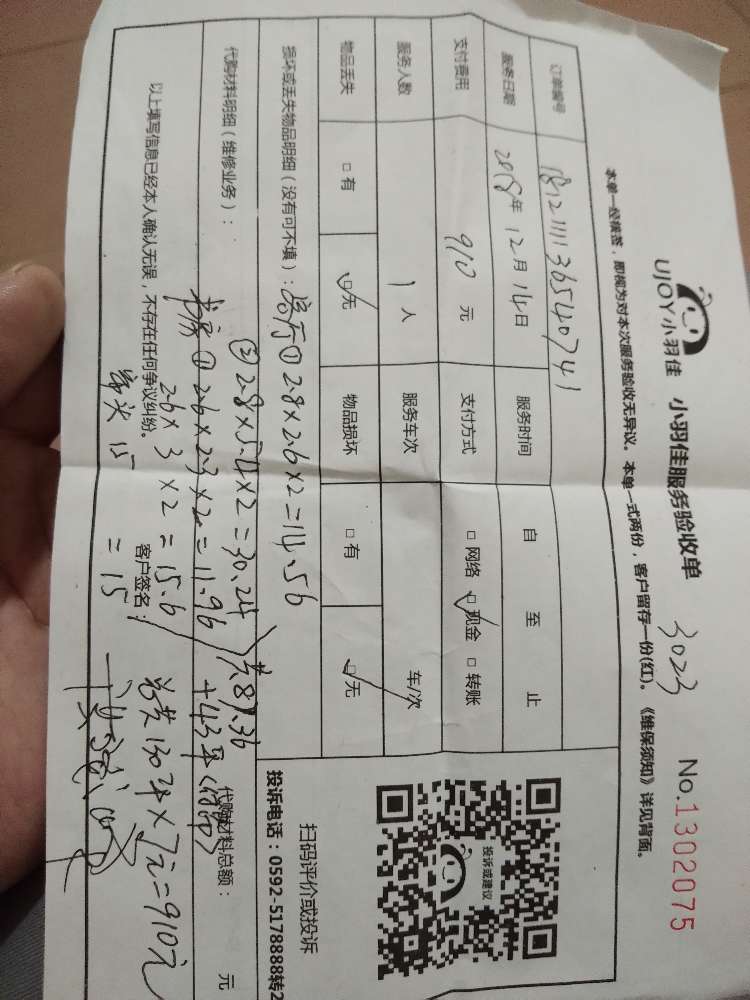 UJOY小羽佳 小羽佳服务验收单 3023 No.1302075
本单一经核签，即视为对本次服务验收无异议。本单一式两份，客户留存一份(红)。《维保须知》详见背面。
订单编号 1812111136540741
服务日期 2018年12月14日 服务时间 自 至 止
支付费用 910元 支付方式 □网络 ☑现金 □转账
服务人数 1人 服务车次 车/次
物品丢失 □有 ☑无 物品损坏 □有 ☑无
扫码评价或投诉
投诉或建议
投诉电话：0592-5178888转2
损坏或丢失物品明细（没有可不填）：客厅① 2.8×2.6×2=14.56
② 2.8×5.4×2=30.24
代购材料明细（维修业务）： 代购材料总额： 元
书房① 2.6×2.3×2=11.96
2.6×3×2=15.6
15 =15
共87.36
+43平
总共130平×7元=910元
以上填写信息已经本人确认无误，不存在任何争议纠纷。 客户签名：